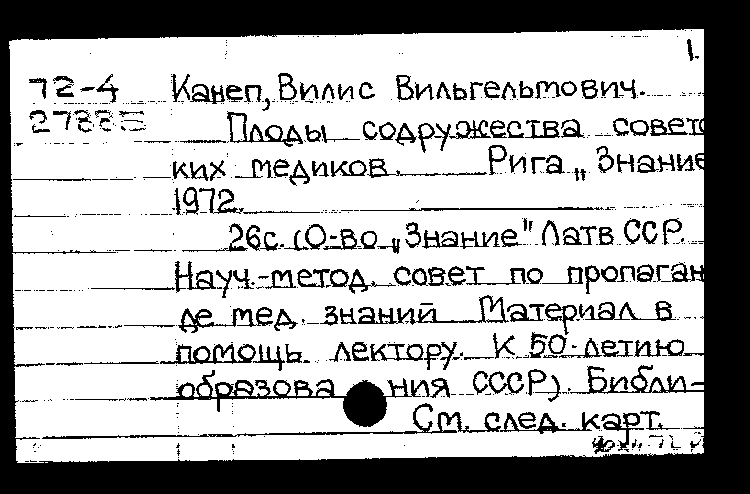 1.
72-4 Канеп, Вилис Вильгельмович.
27885 Плоды содружества совет
ких медиков. Рига „Знание
1972.
26с. (О-во „Знание" Латв ССР.
Науч.-метод. совет по пропаган
де мед. знаний Материал в
помощь лектору. К 50-летию
образования СССР). Библи-
См. след. карт.